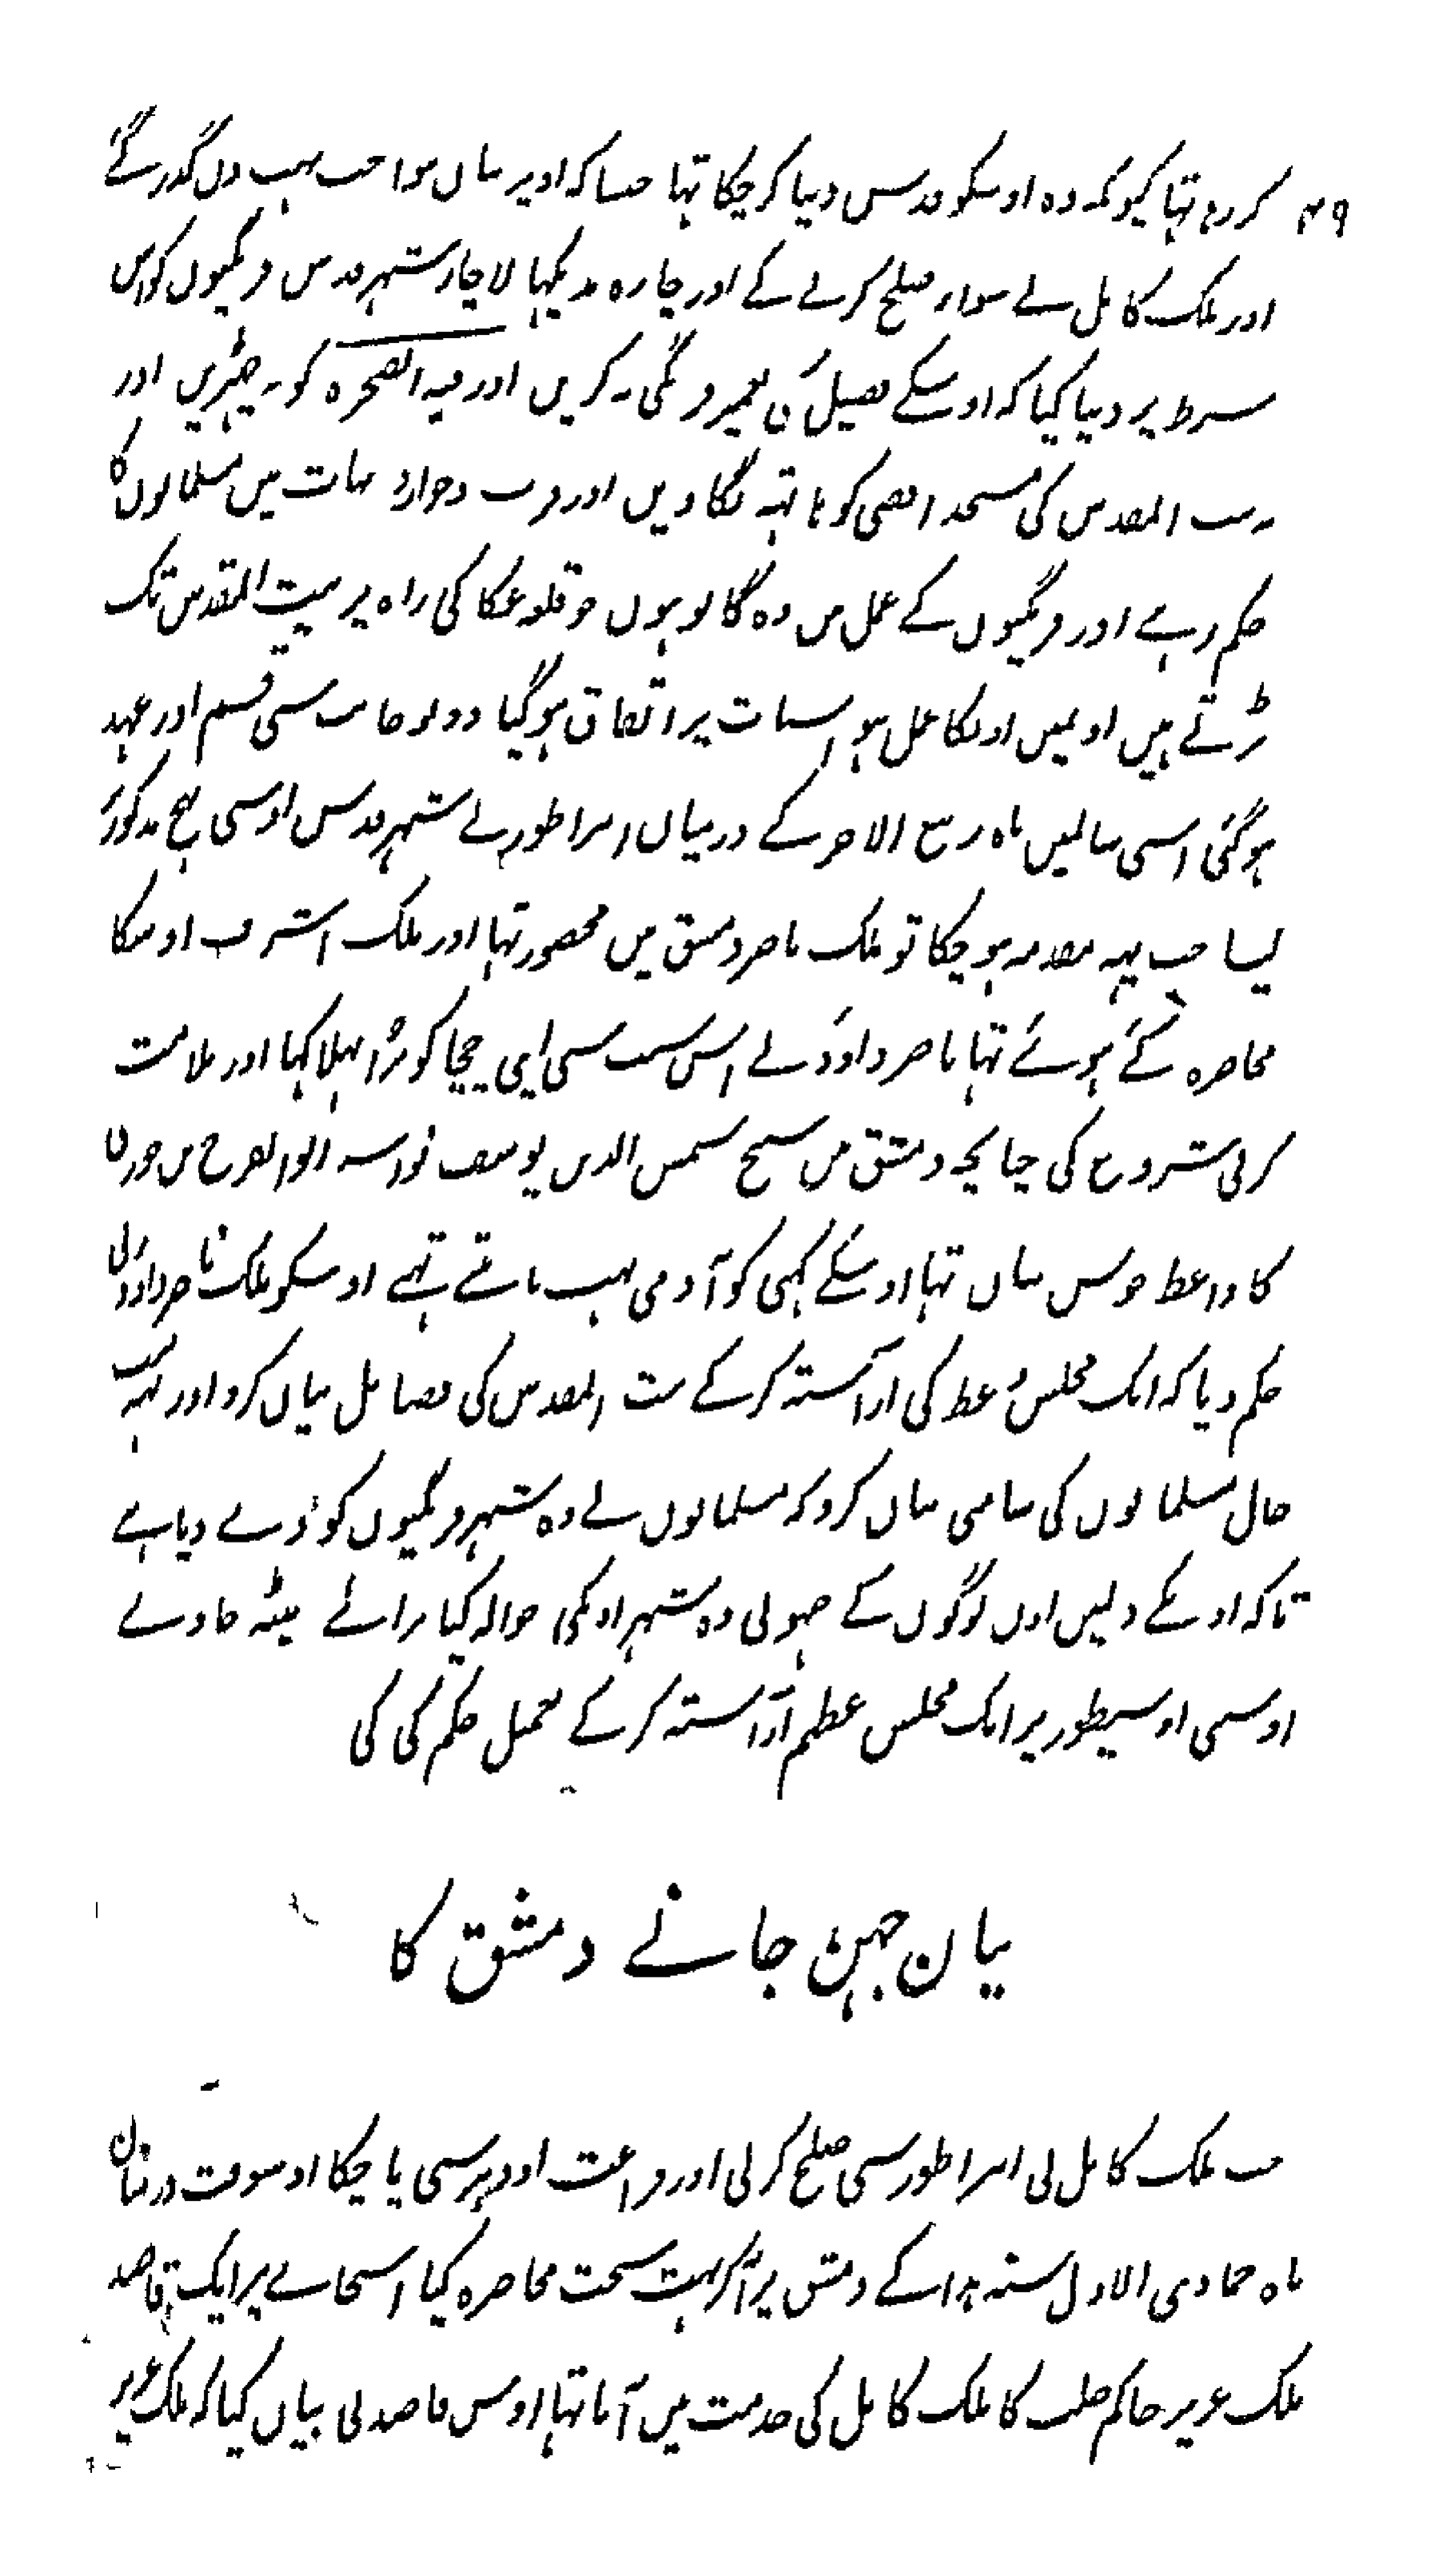 ۴۹ کر رہا تہا کیونکہ وہ اوسکو قدس دنیا کر چکا تہا جیسا کہ اوپر بیان ہوا جب بہت دن گذر گئے
اور ملک کامل نے سواء صلح کرنے کے اور چارہ ندیکہا لاچار شہر قدس فرنگیون کو اس
شرط پر دیا گیا کہ اوسکے فصیل کی تعمیر فرنگی نہ کریں اور قبہ الصخرہ کو نہ چہیڑیں اور نہ
بیت المقدس کی مسجد اقصی کو ہاتہہ لگاویں اور قرب وجوار دیہات میں مسلمانوں کا
حکم رہے اور فرنگیوں کے عمل میں وہ گانو ہوں جو قلعہ عکا کی راہ پر بیت المقدس تک
پڑتے ہیں اونمیں اونکا عمل ہو اسبات پر اتفاق ہوگیا دونو جانب سی قسم اور عہد
ہوگئی اسی سالمیں ماہ ربیع الاخر کے درمیان امبراطور نے شہر قدس اوسی نہج مذکور پر
لیا جب یہہ مقدمہ ہو چکا تو ملک ناصر دمشق میں محصور تہا اور ملک اشرف اوسکا
محاصرہ کئے ہوئے تہا ناصر داود نے اس سبب سی اپنی چچا کو بڑا بہلا کہا اور ملامت
کرنی شروع کی چنانچہ دمشق میں شیخ شمس الدین یوسف نواسہ ابو الفرج بن جوزی
کا واعظ خوش بیان تہا اوسکے کہی کو آدمی بہت مانتے تہے اوسکو ملک ناصر داود نی
حکم دیا کہ ایک مجلس وعظ کی آراستہ کرکے بیت المقدس کی فضایل بیان کرو اور یہہ سب
حال مسلمانوں کی سامنی بیان کرو کہ مسلمانوں نے وہ شہر فرنگیوں کو دے دیا ہے
تاکہ اونکے دلمیں اون لوگوں کے جنہونی وہ شہر اونکی حوالہ کیا برائے بیٹہ جاوے
اوسی اوسیطور پر ایک مجلس عظیم آراستہ کرکے تعمیل حکم کی کی
بیان چہن جانے دمشق کا
جب ملک کامل نی امبراطور سی صلح کرلی اور فراغت اودہر سی پا چکا اوسوقت درمیان
ماہ جمادی الاول سنہ ہذا کے دمشق پر آکر بہت سخت محاصرہ کیا اسجاے پر ایک قاصد
ملک عزیز حاکم حلب کا ملک کامل کی خدمت میں آیا تہا اوس قاصد نی بیاں کیا کہ ملک عزیز